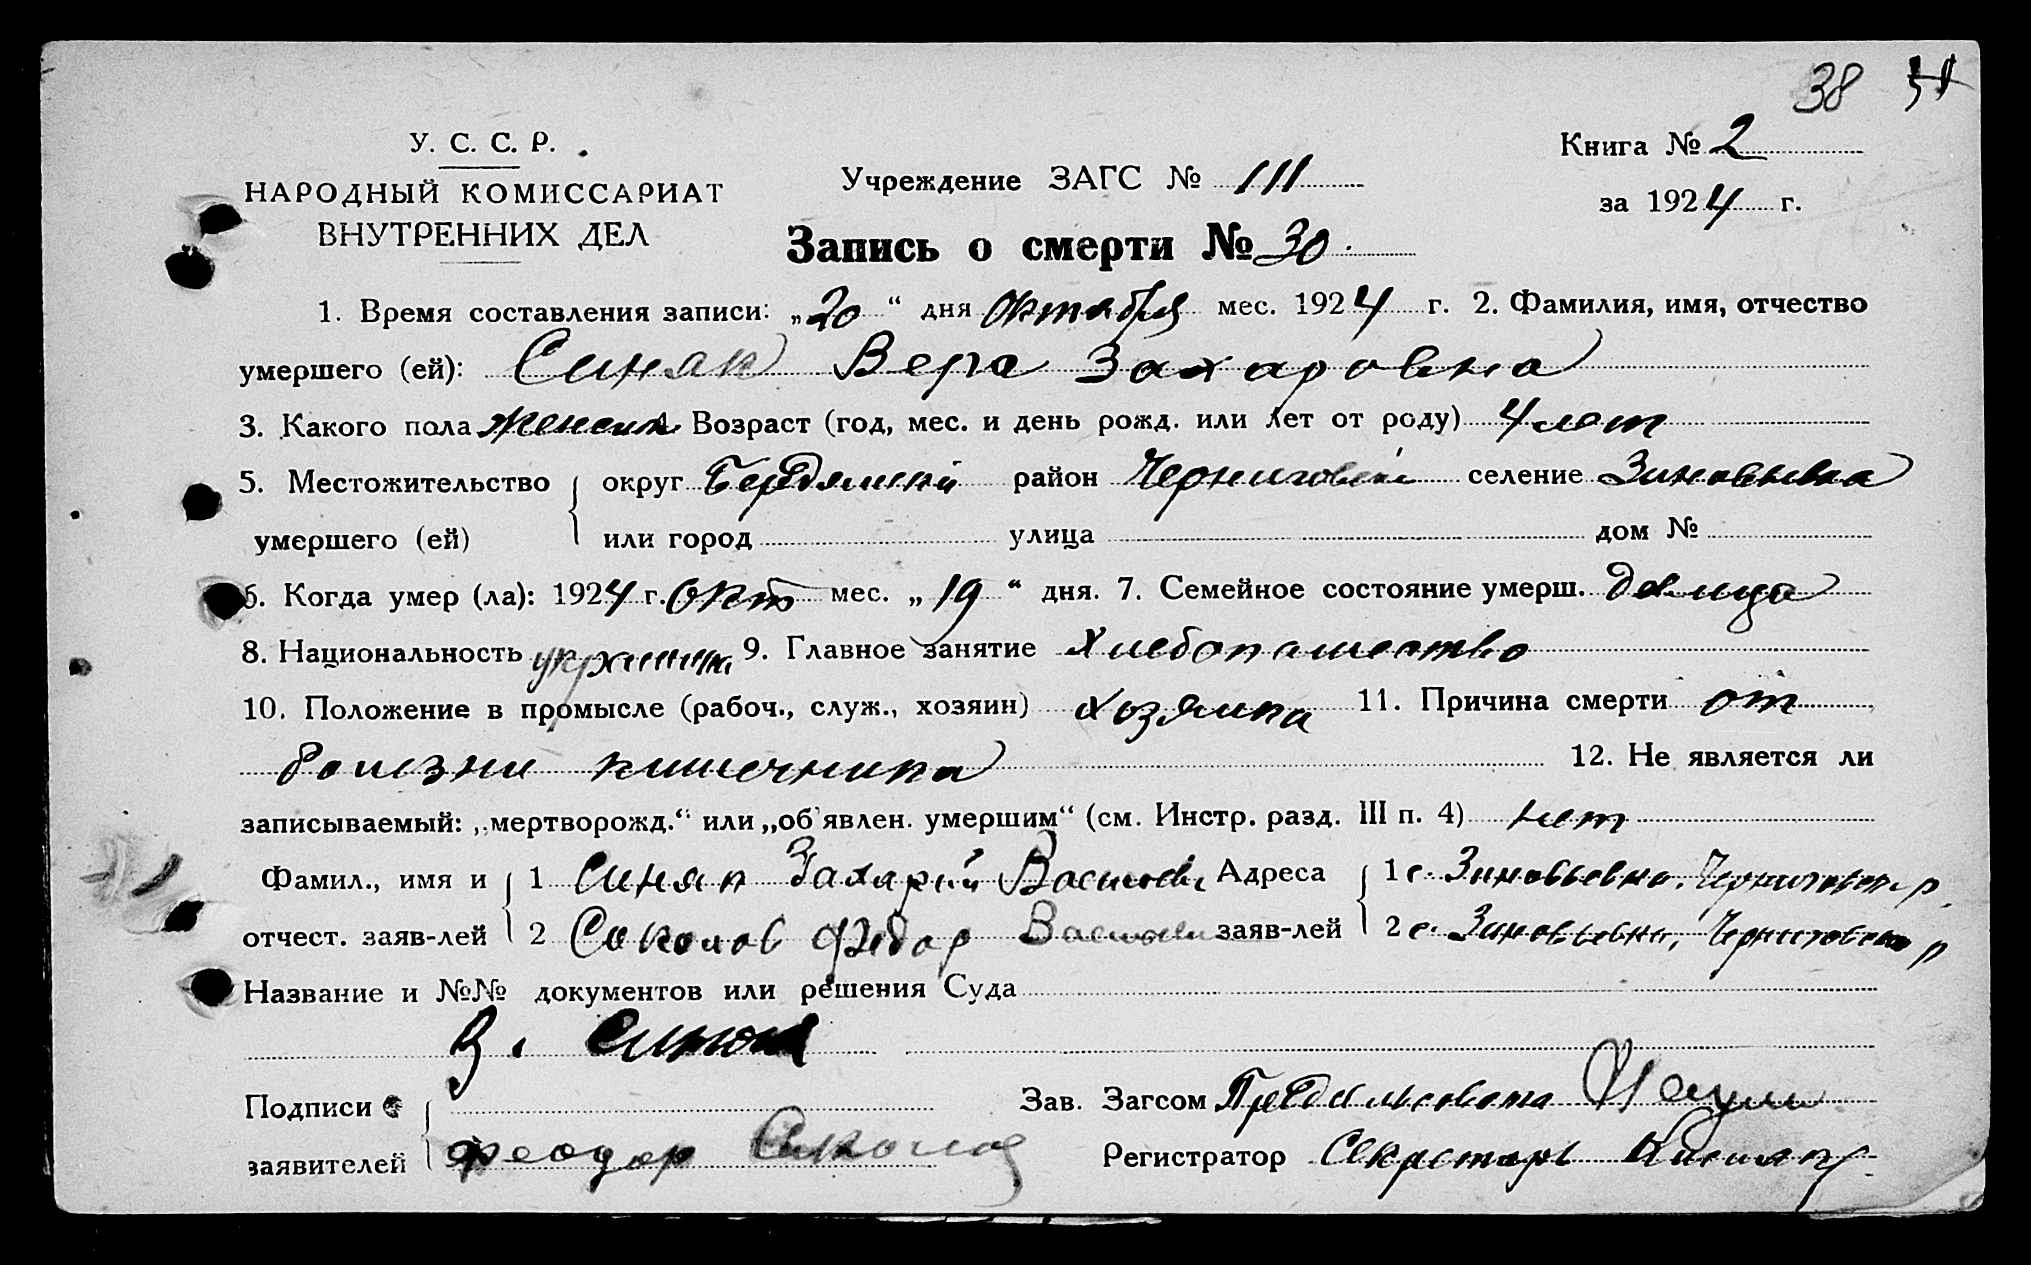 38
У. С. С. Р.
НАРОДНЫЙ КОМИССАРИАТ
ВНУТРЕННИХ ДЕЛ
Учреждение ЗАГС № 111
Книга № 2
за 1924 г.
Запись о смерти № 30
1. Время составления записи: „20“ дня Октября мес. 1924 г. 2. Фамилия, имя, отчество
умершего (ей): Синяк Вера Захаровна
3. Какого пола женск 4. Возраст (год, мес. и день рожд. или лет от роду) 4 лет
5. Местожительство умершего (ей) округ Бердянский район Черниговский селение Зиновьевка
или город улица дом №
6. Когда умер (ла): 1924 г. Окт мес. „19“ дня. 7. Семейное состояние умерш. девица
8. Национальность украинка 9. Главное занятие Хлебопашество
10. Положение в промысле (рабоч., служ., хозяин) хозяина 11. Причина смерти от
болезни кишечника 12. Не является ли
записываемый: „мертворожд.“ или „об'явлен. умершим“ (см. Инстр. разд. III п. 4) нет
Фамил., имя и отчест. заяв-лей 1 Синяк Захарий Васильев Адреса заяв-лей 1 с. Зиновьевка, Черниговск. р.
2 Соколов Федор Васильев 2 с. Зиновьевка, Черниговского р
Название и №№ документов или решения Суда
З. Синяк
Подписи заявителей
Зав. Загсом Предсельсовета
Феодор Соколов
Регистратор Секретарь